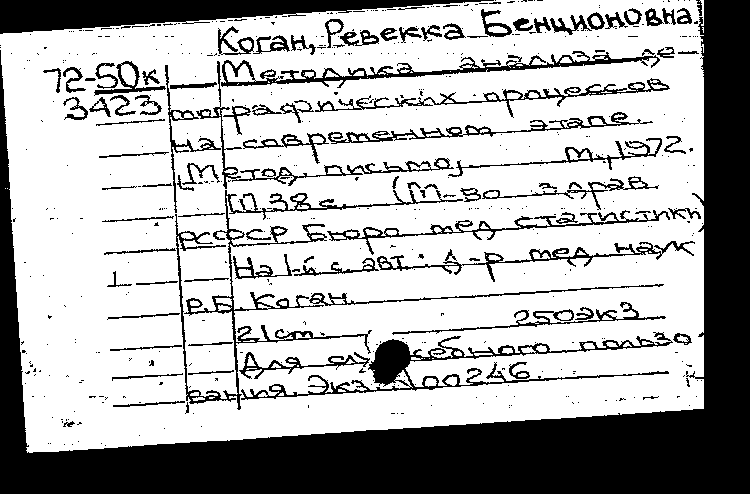 Коган, Ревекка Бенционовна.
72-50к Методика анализа де-
3423 мографических процессов
на современном этапе.
[Метод. письмо]. М., 1972.
[1], 38 с. (М-во здрав.
РСФСР Бюро мед. статистики)
На 1-й с. авт.: д-р мед. наук
Р.Б. Коган.
21 см. 250экз
Для служебного пользо-
вания. Экз. 00246.